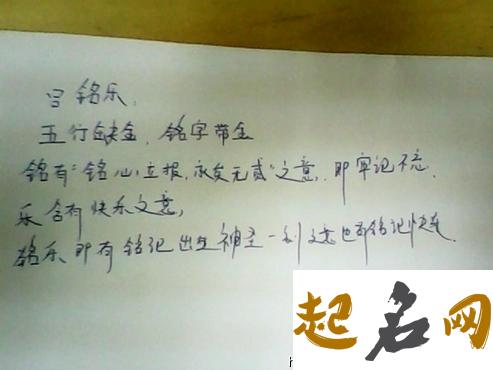 吕铭乐，
五行缺金，铭字带金
铭有“铭心立报，永矢无贰”之意，即牢记不忘。
乐含有快乐之意，
铭乐即有铭记出生神圣一刻之意也有铭记快乐
起名网